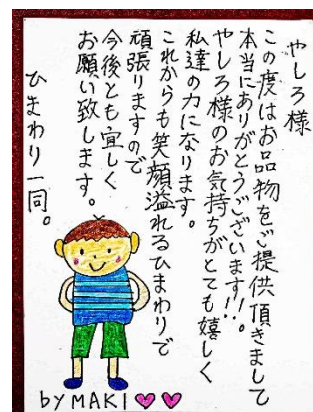 やしろ様
この度はお品物をご提供頂きまして
本当にありがとうございます!!。
やしろ様のお気持ちがとても嬉しく
私達の力になります。
これからも笑顔溢れるひまわりで
頑張りますので
今後とも宜しく
お願い致します。
ひまわり一同。
by MAKI♡♡